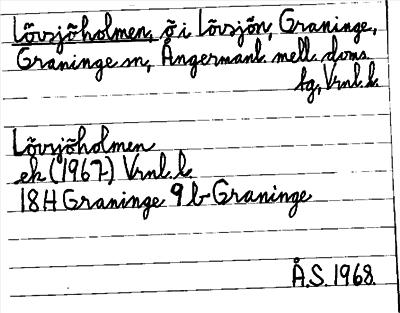 Lövsjöholmen, ö i Lövsjön, Graninge,
Graninge sn, Ångermanl. mell. doms.
lg, Vrnl. l.
Lövsjöholmen
ek (1967) Vrnl. l.
18H Graninge 9b Graninge
Å.S. 1968.